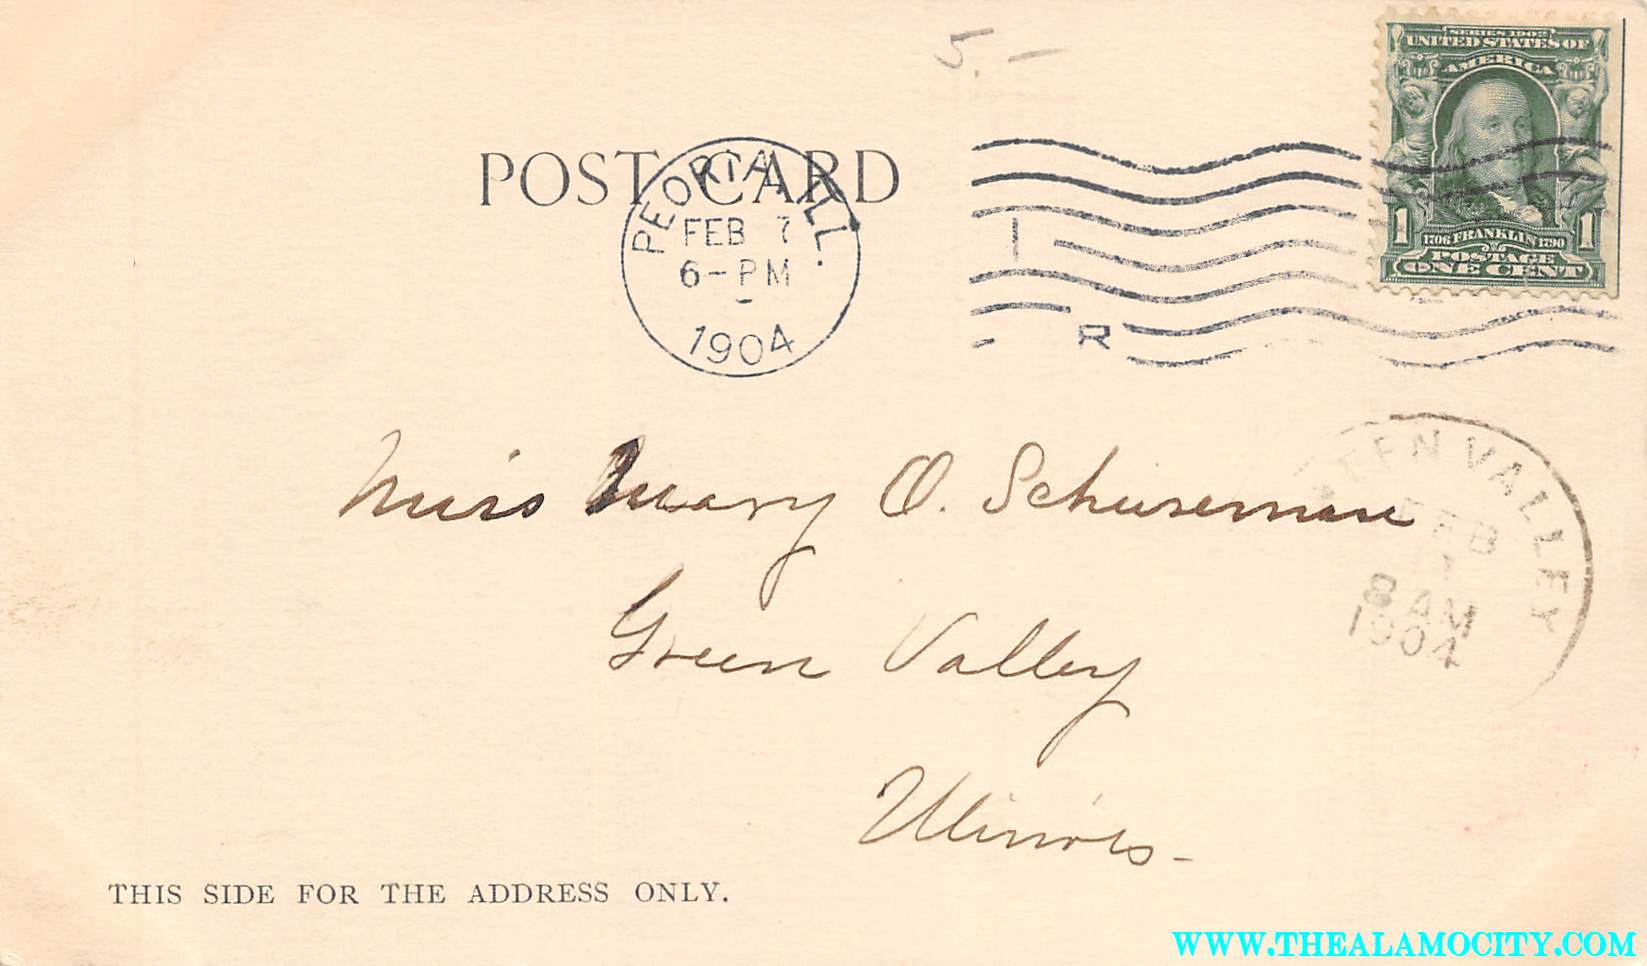 5.-
SERIES 1902
UNITED STATES OF
AMERICA
1 1
1706 FRANKLIN 1790
POSTAGE
ONE CENT
POST CARD
PEORIA, ILL.
FEB 7
6-PM
1904
I
R
Miss Mary O.
Green Valley
Illinois-
VALLEY
FEB
8 AM
1904
THIS SIDE FOR THE ADDRESS ONLY.
WWW.THEALAMOCITY.COM